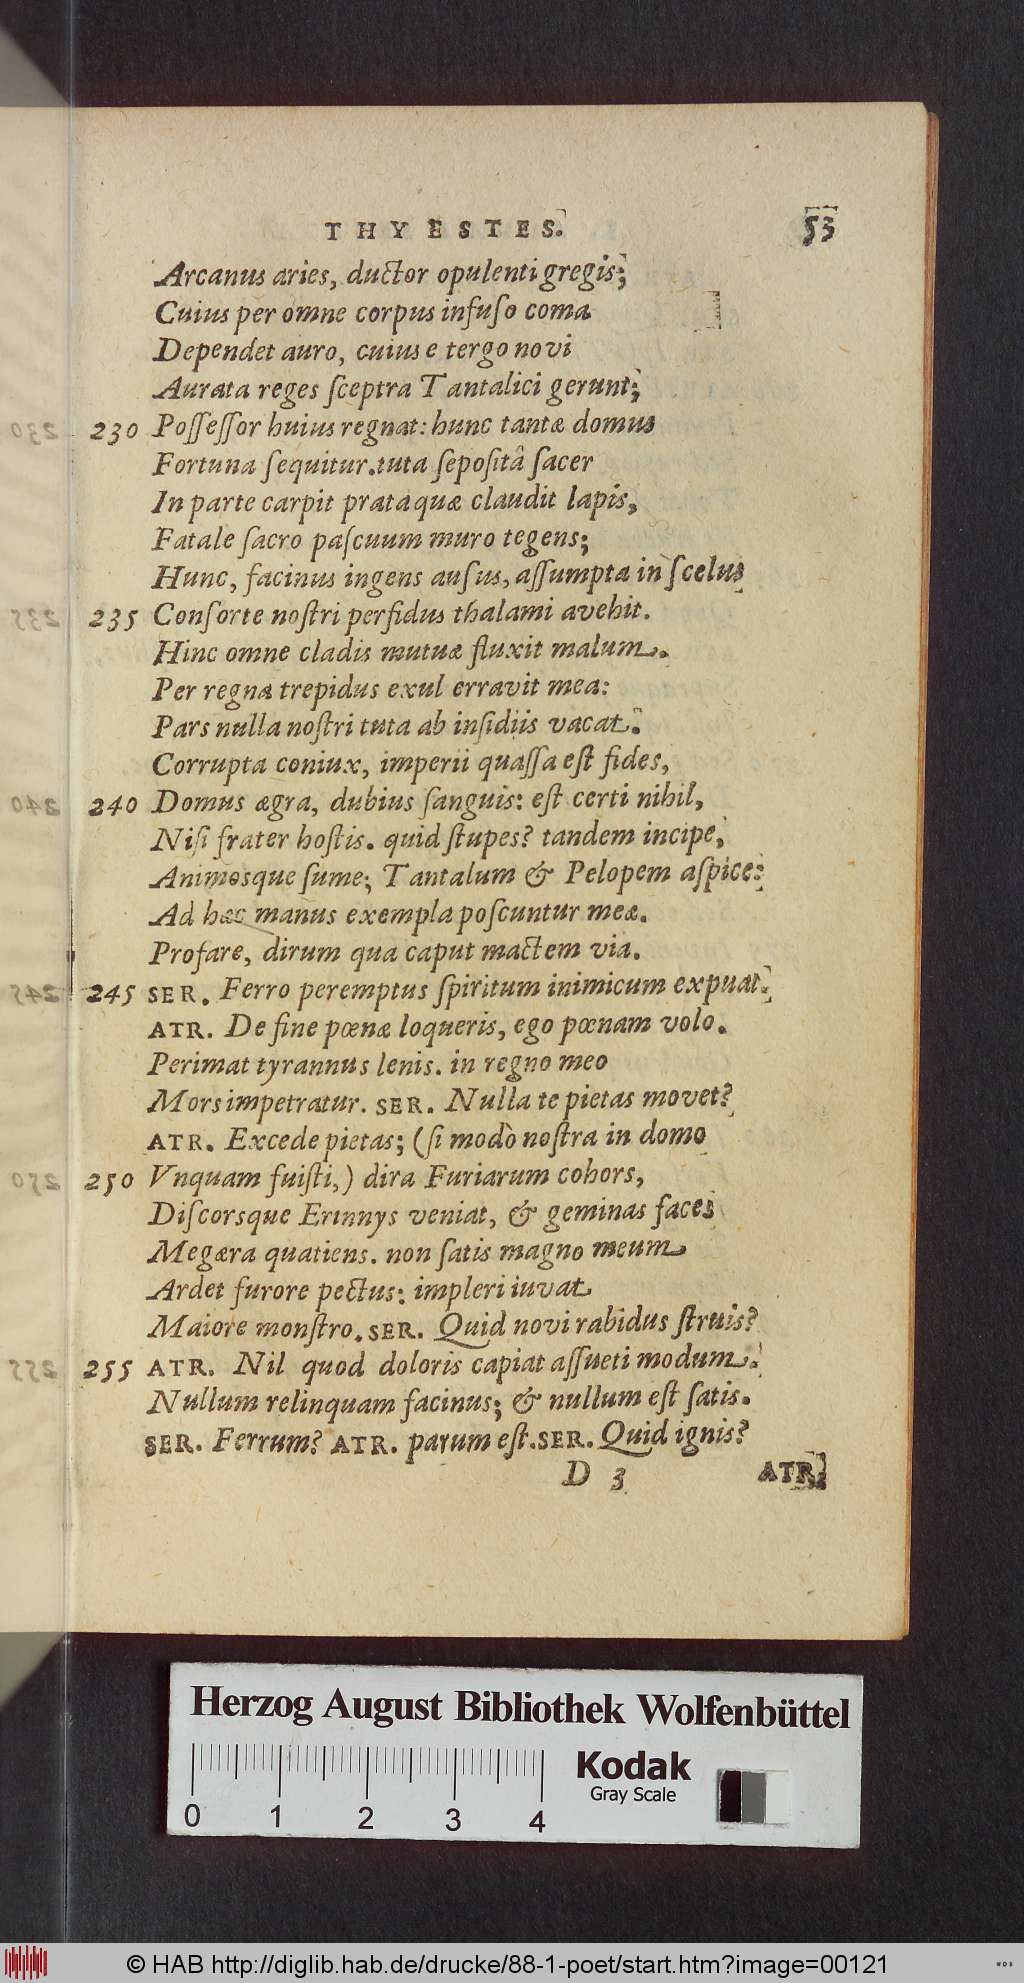 THYESTES. 53
Arcanus aries, ductor opulenti gregis;
Cuius per omne corpus infuſo coma
Dependet auro, cuius e tergo novi
Aurata reges ſceptra Tantalici gerunt;
230 Poſſeſſor huius regnat: hunc tantæ domus
Fortuna ſequitur. tuta ſepoſitâ ſacer
In parte carpit prata quæ claudit lapis,
Fatale ſacro paſcuum muro tegens;
Hunc, facinus ingens auſus, aſſumpta in ſcelus
235 Conſorte noſtri perfidus thalami avehit.
Hinc omne cladis mutuæ fluxit malum.
Per regna trepidus exul erravit mea:
Pars nulla noſtri tuta ab inſidiis vacat.
Corrupta coniux, imperii quaſſa eſt fides,
240 Domus ægra, dubius ſanguis: eſt certi nihil,
Niſi frater hoſtis. quid ſtupes? tandem incipe,
Animosque ſume; Tantalum & Pelopem aſpice:
Ad hæc manus exempla poſcuntur meæ.
Profare, dirum qua caput mactem via.
245 SER. Ferro peremptus ſpiritum inimicum expuat.
ATR. De fine pœnæ loqueris, ego pœnam volo.
Perimat tyrannus lenis. in regno meo
Mors impetratur. SER. Nulla te pietas movet?
ATR. Excede pietas; (ſi modò noſtra in domo
250 Vnquam fuiſti,) dira Furiarum cohors,
Diſcorsque Erinnys veniat, & geminas faces
Megæra quatiens. non ſatis magno meum
Ardet furore pectus: impleri iuvat
Maiore monſtro. SER. Quid novi rabidus ſtruis?
255 ATR. Nil quod doloris capiat aſſueti modum.
Nullum relinquam facinus; & nullum eſt ſatis.
SER. Ferrum? ATR. parum eſt. SER. Quid ignis?
D 3 ATR.
Herzog August Bibliothek Wolfenbüttel
Kodak
Gray Scale
0 1 2 3 4
© HAB http://diglib.hab.de/drucke/88-1-poet/start.htm?image=00121